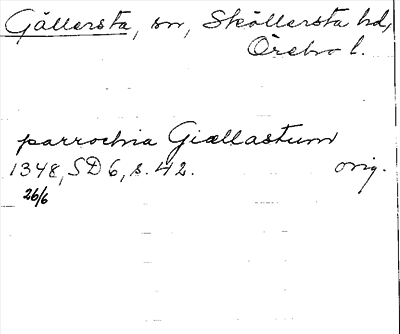 Gällersta, sn, Sköllersta hd,
Örebro l.
parrochia Giællastum
1348, SD 6, s. 42. orig.
26/6